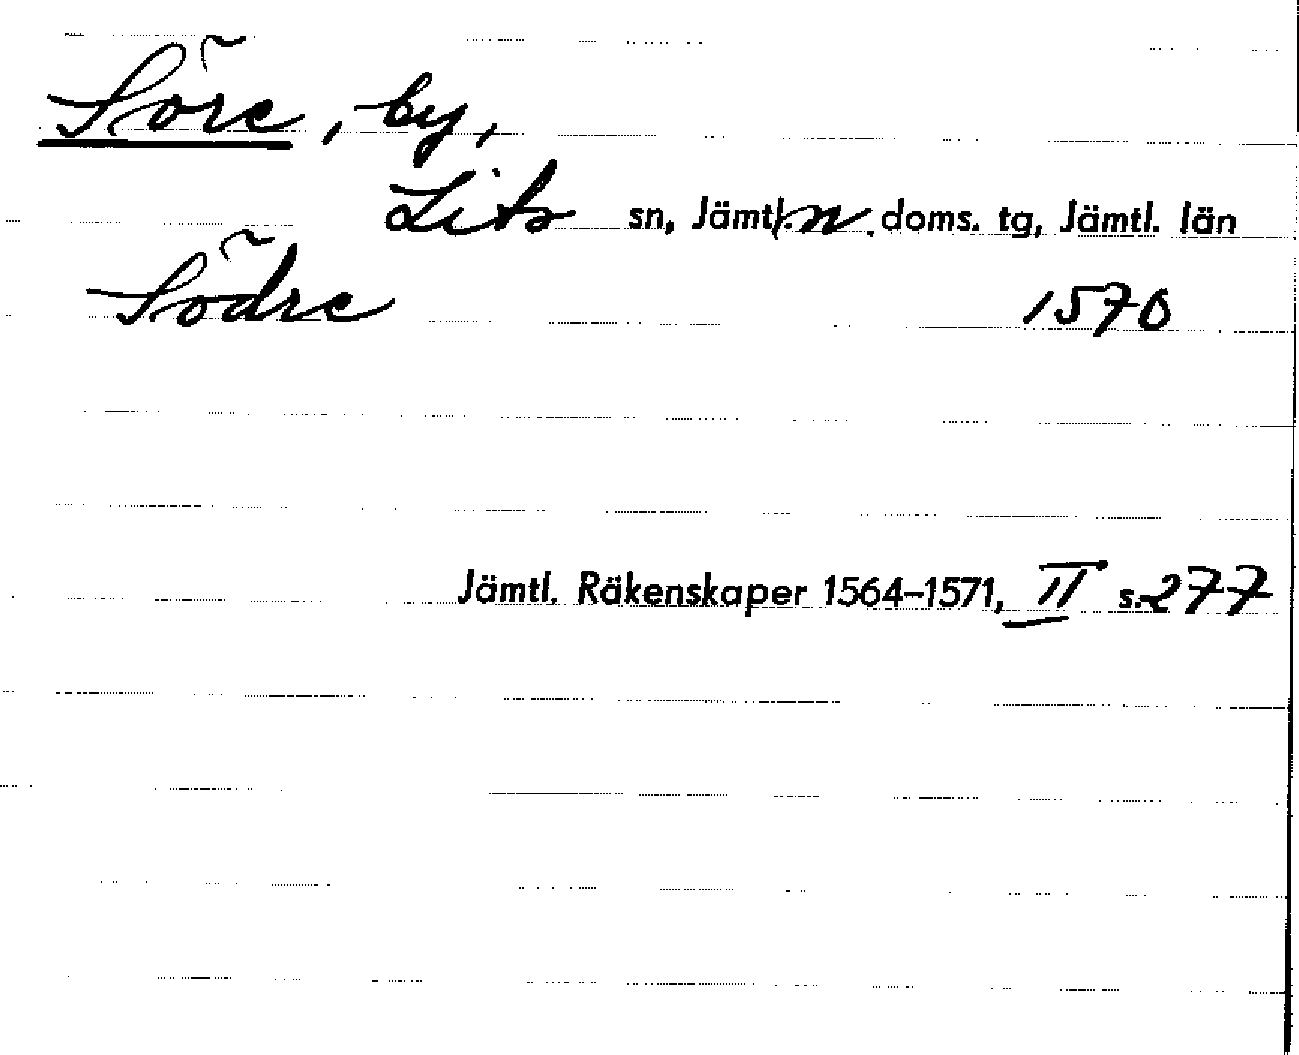 Söre, by,
Lits sn, Jämtl. n. doms. tg, Jämtl. län
Södre 1570
Jämtl. Räkenskaper 1564–1571, II s. 277